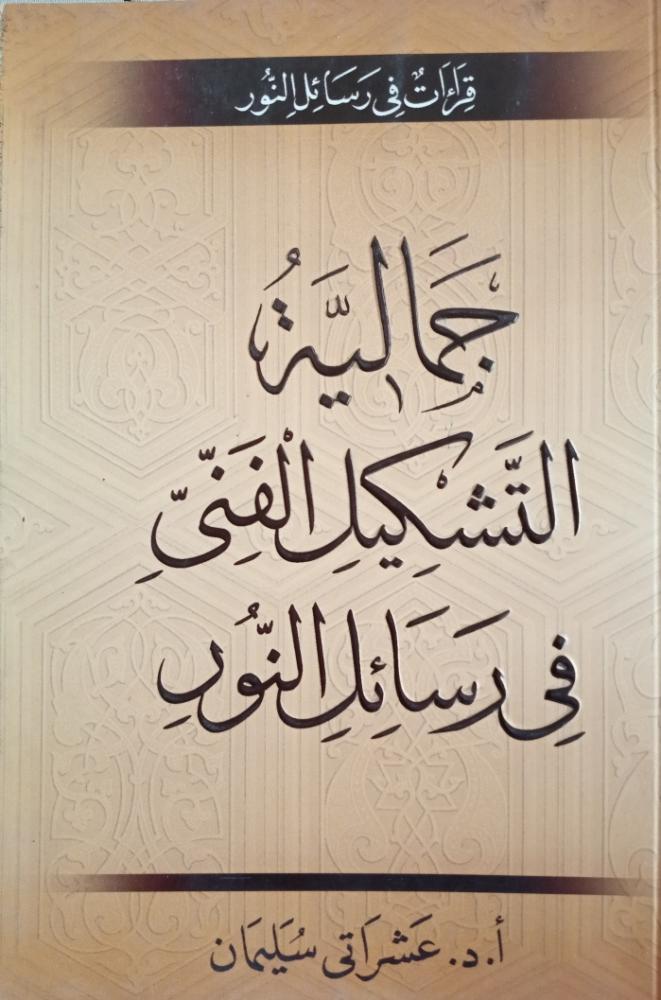 قِرَاءَاتٌ فِي رَسَائِلِ النُّور
جَمَالِيَّةُ
التَّشْكِيلِ الْفَنِّيِّ
فِي رَسَائِلِ النُّورِ
أ. د. عَشْرَاتِي سُلَيْمَان